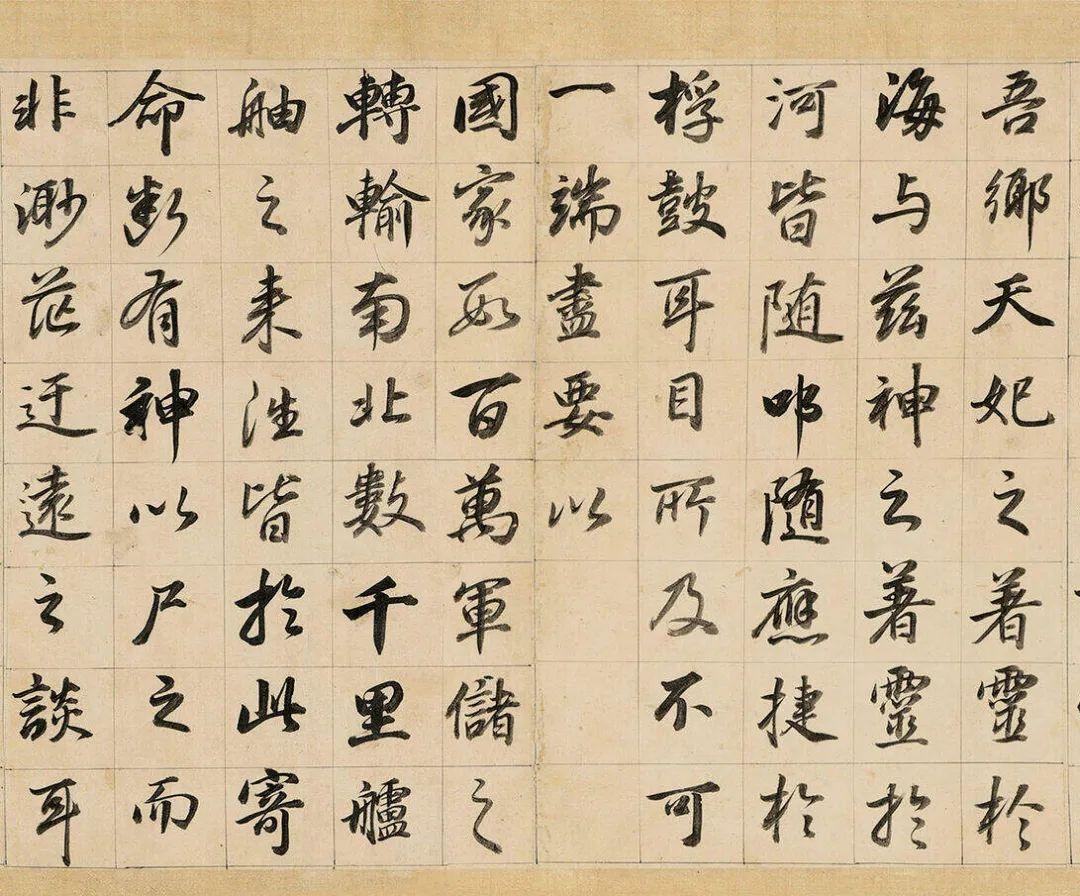 吾鄉天妃之著靈於
海与茲神之著靈於
河皆随叩隨應捷於
桴鼓耳目所及不可
一端盡要以
國家數百萬軍儲之
轉輸南北數千里艫
舳之来往皆於此寄
命斷有神以尸之而
非渺茫迂遠之談耳